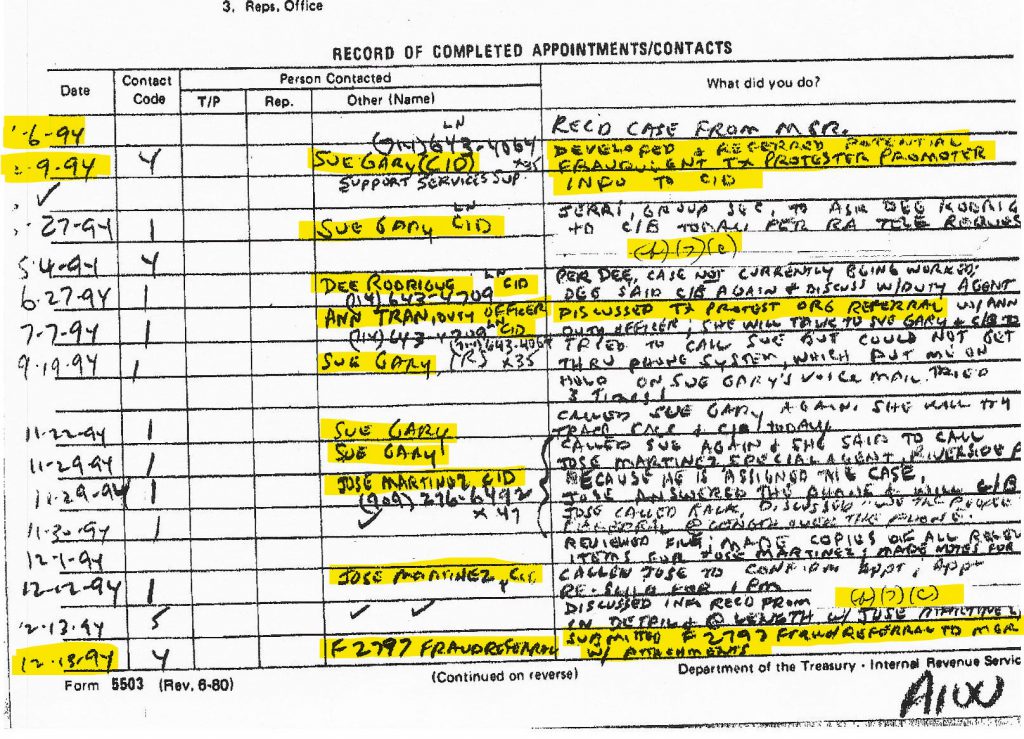 3. Reps. Office
RECORD OF COMPLETED APPOINTMENTS/CONTACTS
Date Contact Code Person Contacted What did you do?
T/P Rep. Other (Name)
6-94 REC'D CASE FROM MGR.
LN
(714) 643-4064
2-9-94 4 SUE GARY (CID) X35 DEVELOPED & REFERRED POTENTIAL
SUPPORT SERVICES SUP. FRAUDULENT TX PROTESTER PROMOTER
✓ INFO TO CID
27-94 1 SUE GARY CID LN JERRI, GROUP SEC, TO ASK DEE RODRIG
TO C/B TODAY PER RA TELE REQUES
5-4-94 4 (b)(7)(C)
6-27-94 DEE RODRIGUE LN CID PER DEE, CASE NOT CURRENTLY BEING WORKED;
(714) 643-4709 DEE SAID C/B AGAIN & DISCUSS W/DUTY AGENT
7-7-94 1 ANN TRAN, DUTY OFFICER DISCUSSED TX PROTEST ORG REFERRAL W/ANN
(714) 643-4709 LN CID DUTY OFFICER; SHE WILL TALK TO SUE GARY & C/B TO
9-19-94 1 SUE GARY, (R) (714) 643-4064 X35 TRIED TO CALL SUE BUT COULD NOT GET
THRU PHONE SYSTEM, WHICH PUT ME ON
HOLD ON SUE GARY'S VOICE MAIL. TRIED
3 TIMES!
11-22-94 1 SUE GARY CALLED SUE GARY AGAIN. SHE WILL TRY
TRACE CASE & C/B TODAY
11-29-94 1 SUE GARY CALLED SUE AGAIN & SHE SAID TO CALL
JOSE MARTINEZ, SPECIAL AGENT, RIVERSIDE
11-29-94 1 JOSE MARTINEZ CID BECAUSE HE IS ASSIGNED THE CASE.
(909) 276-6492 JOSE ANSWERED THE PHONE & WILL C/B
X 47
11-30-94 1 ✓ JOSE CALLED BACK, DISCUSSED "WE THE PEOPLE
REFERRAL @ LENGTH OVER THE PHONE.
12-1-94 REVIEWED FILE; MADE COPIES OF ALL RELEV
ITEMS FOR JOSE MARTINEZ; MADE NOTES FOR
12-12-94 1 JOSE MARTINEZ, CID CALLED JOSE TO CONFIRM APPT; APPT
RE-SCHED FOR 1 PM
12-13-94 5 ✓ ✓ DISCUSSED INFO REC'D FROM (b)(7)(C)
IN DETAIL & @ LENGTH W/ JOSE MARTINEZ
12-13-94 4 F 2797 FRAUD REFERRAL SUBMITTED F 2797 FRAUD REFERRAL TO MGR
W/ ATTACHMENTS
Form 5503 (Rev. 6-80) (Continued on reverse) Department of the Treasury - Internal Revenue Servic
A100